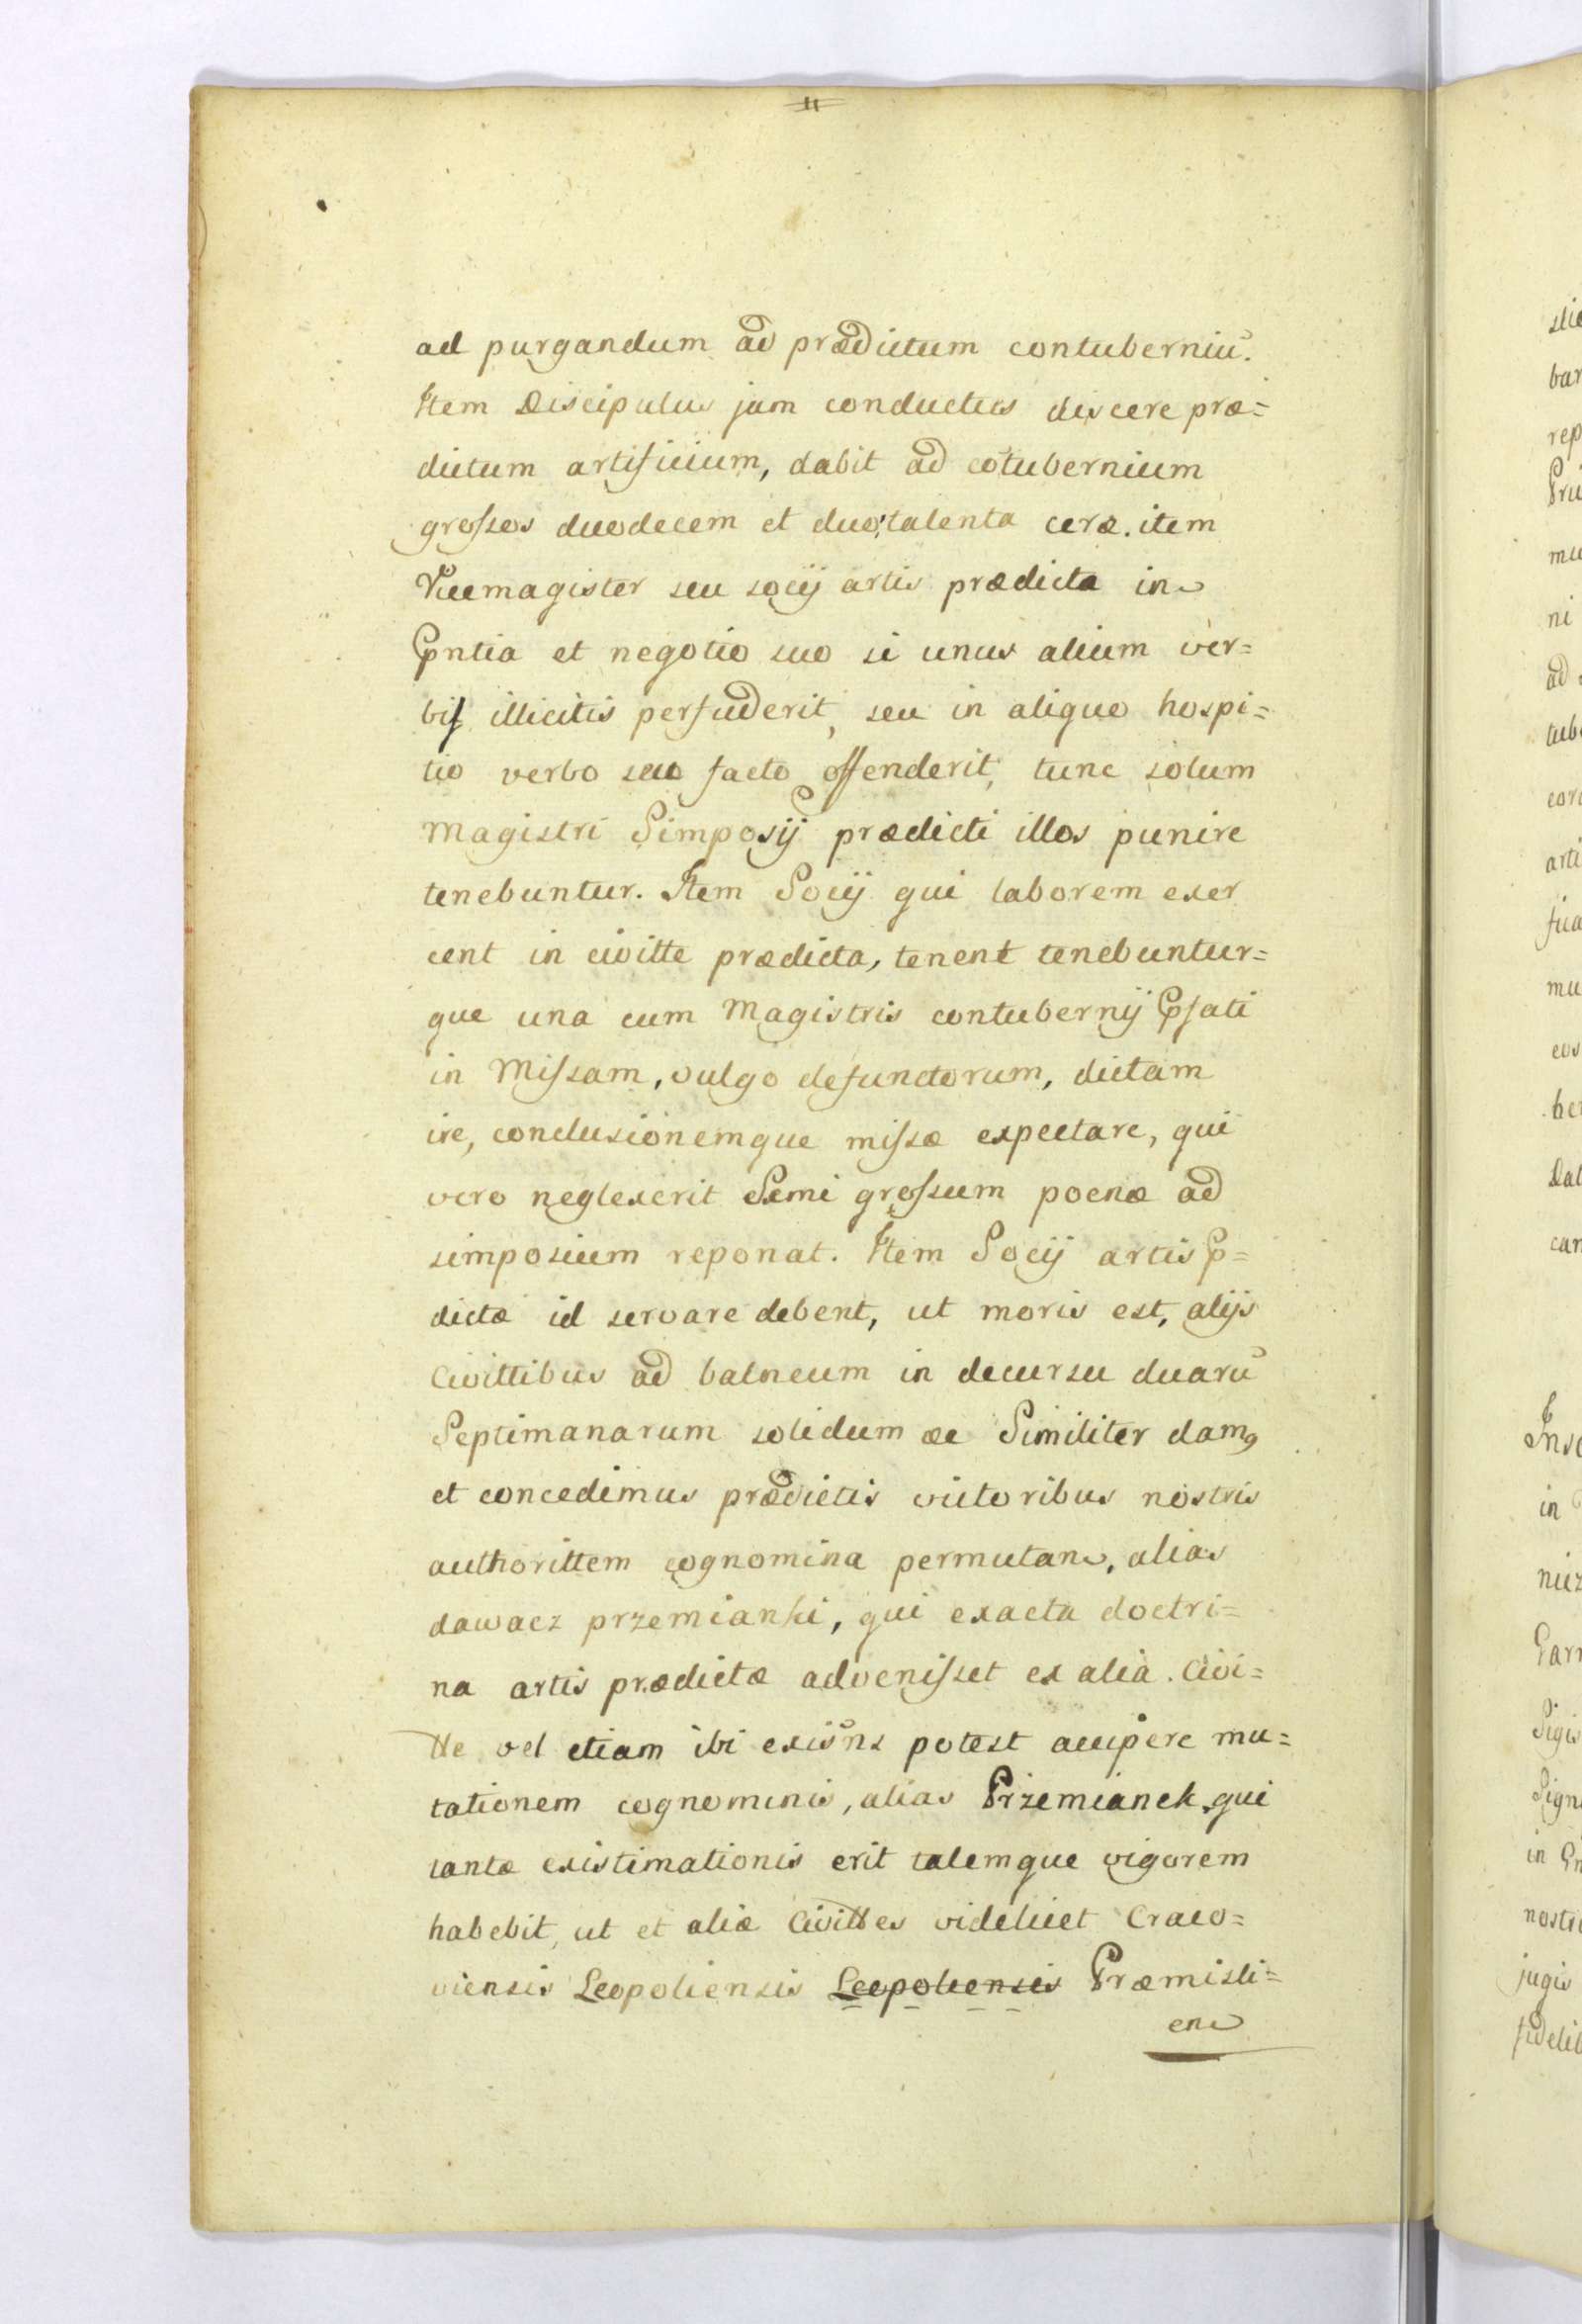 11
ad purgandum ad prædictum contuberniū.
Item Discipulus jam conductus discere præ=
dictum artificium, dabit ad cōtubernium
grossos duodecem et duo talenta ceræ. item
Vicemagister seu socij artis prædicta in
Ppntia et negotio suo si unus alium ver=
bis illicitis perfuderit, seu in aliquo hospi=
tio verbo seu facto offenderit, tunc solum
Magistri Simposij prædicti illos punire
tenebuntur. Item Socij qui laborem exer
cent in civitte prædicta, tenent tenebuntur=
que una cum Magistris contubernij Ppfati
in Missam, vulgo defunctorum, dictam
ire, conclusionemque missæ expectare, qui
vero neglexerit Semi grossum poenæ ad
simposium reponat. Item Socij artis P=
dictæ id servare debent, ut moris est, alijs
Civittibus ad balneum in decursu duarū
Septimanarum solidum ac Similiter dam9
et concedimus prædictis victoribus nostris
authorittem cognomina permutan, alias
dawacz przemianki, qui exacta doctri=
na artis prædictæ advenisset ex alia Civi=
tte vel etiam ibi exisns potest accipere mu=
tationem cognominis, alias Przemianek, qui
tantæ existimationis erit talemque vigorem
habebit, ut et aliæ Civittes videlicet Craco=
viensis Leopoliensis Leopoliensis Præmisli=
en